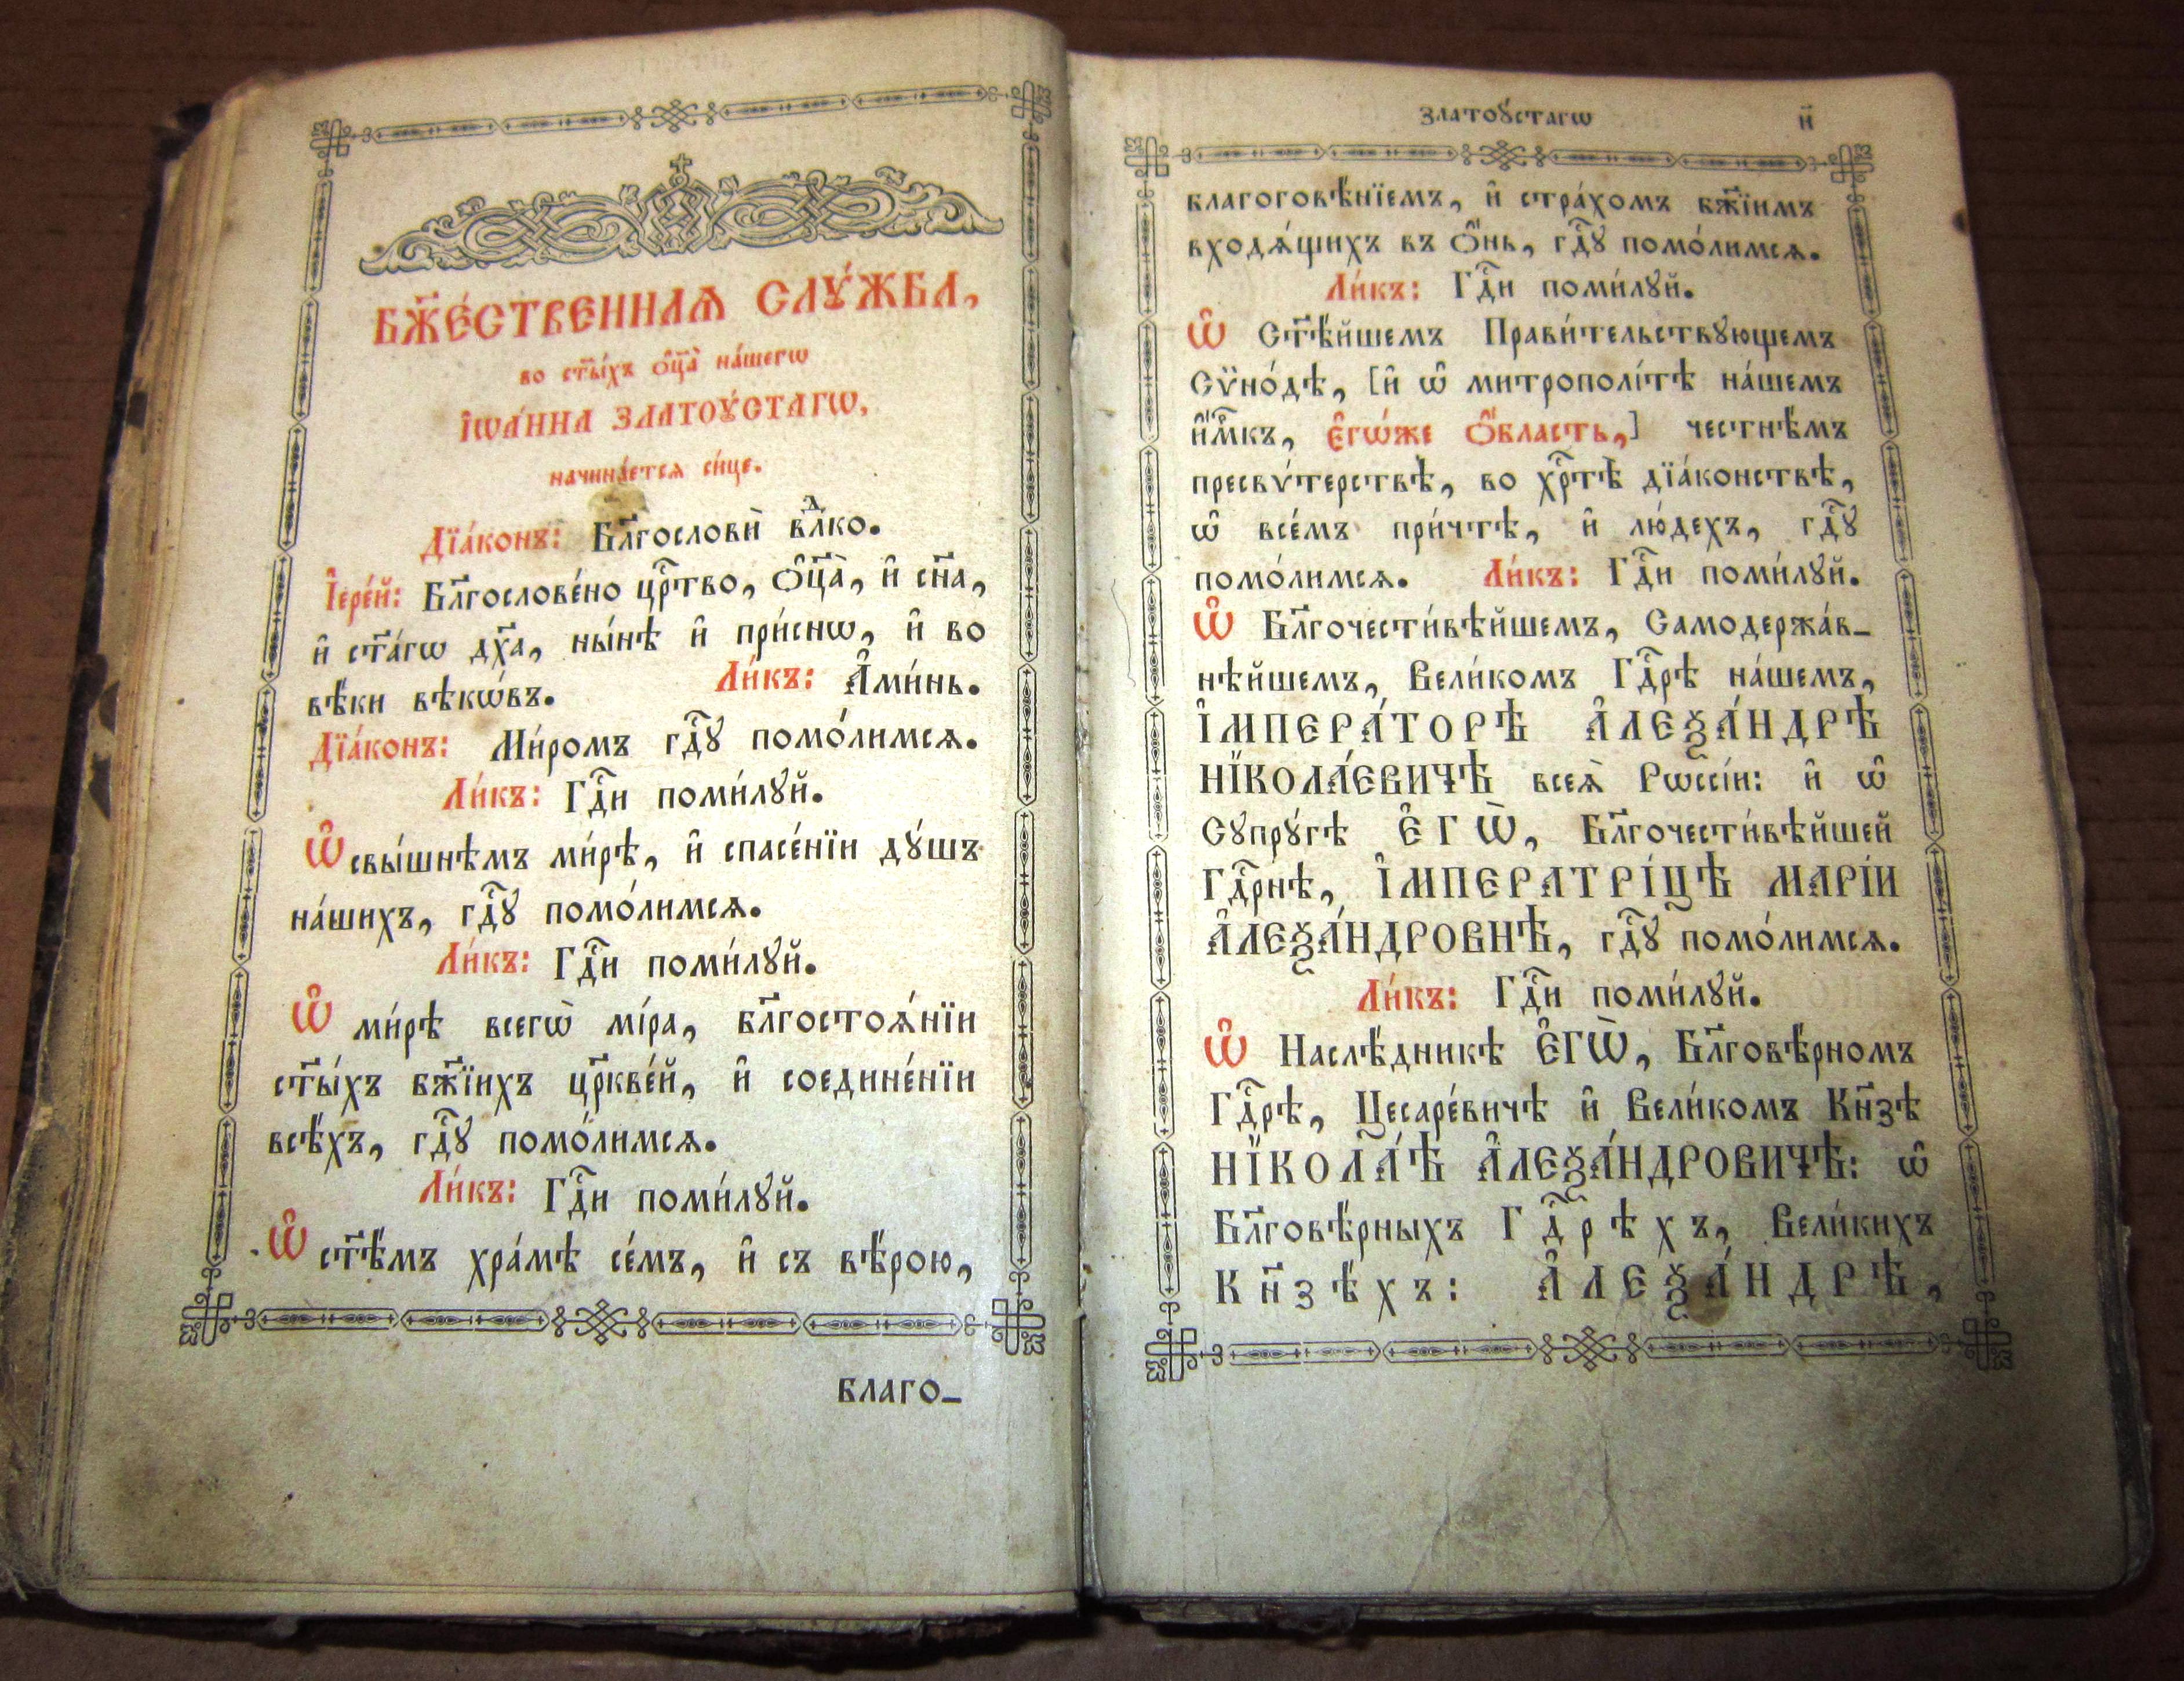 БЖ҃Е́СТВЕННАѦ СЛꙊ́ЖБА,
во ст҃ы́хъ ѻ҆ц҃а̀ на́шегѡ
І҆ѠА́ННА ЗЛАТОꙊ́СТАГѠ,
начина́етсѧ си́це.
Дїа́конъ: Бл҃гословѝ влⷣко.
І҆ере́й: Бл҃гослове́но црⷭ҇тво, Ѻ҆ц҃а̀, и҆ сн҃а,
и҆ ст҃а́гѡ дх҃а, ны́нѣ и҆ при́снѡ, и҆ во
вѣ́ки вѣкѡ́въ. Ли́къ: А҆ми́нь.
Дїа́конъ: Ми́ромъ гдⷭ҇ꙋ помо́лимсѧ.
Ли́къ: Гдⷭ҇и поми́лꙋй.
Ѡ҆ свы́шнѣмъ ми́рѣ, и҆ спасе́нїи дꙋ́шъ
на́шихъ, гдⷭ҇ꙋ помо́лимсѧ.
Ли́къ: Гдⷭ҇и поми́лꙋй.
Ѡ҆ ми́рѣ всегѡ̀ мі́ра, бл҃гостоѧ́нїи
ст҃ы́хъ бж҃їихъ цр҃кве́й, и҆ соедине́нїи
всѣ́хъ, гдⷭ҇ꙋ помо́лимсѧ.
Ли́къ: Гдⷭ҇и поми́лꙋй.
Ѡ҆ ст҃ѣ́мъ хра́мѣ се́мъ, и҆ съ вѣ́рою,
благо-
златоꙋ́стагѡ и҃
благоговѣ́нїемъ, и҆ стра́хомъ бж҃їимъ
входѧ́щихъ въ ѻ҆́нь, гдⷭ҇ꙋ помо́лимсѧ.
Ли́къ: Гдⷭ҇и поми́лꙋй.
Ѡ҆ Ст҃ѣ́йшемъ Прави́тельствꙋющемъ
Сѷно́дѣ, [и҆ ѡ҆ митрополі́тѣ на́шемъ
и҆́м҃къ, є҆гѡ́же ѻ҆́бласть,] честнѣ́мъ
пресвѵ́терствѣ, во хрⷭ҇тѣ̀ дїа́конствѣ,
ѡ҆ все́мъ при́чтѣ, и҆ лю́дехъ, гдⷭ҇ꙋ
помо́лимсѧ. Ли́къ: Гдⷭ҇и поми́лꙋй.
Ѡ҆ Бл҃гочести́вѣйшемъ, Самодержа́в-
нѣйшемъ, Вели́комъ Гдⷭ҇рѣ на́шемъ,
І҆МПЕРА́ТОРѢ А҆ЛЕѮА́НДРѢ
НЇКОЛА́ЕВИЧѢ всеѧ̀ Рѡссі́и: и҆ ѡ҆
Сꙋпрꙋ́гѣ Є҆ГѠ̀, Бл҃гочести́вѣйшей
Гдⷭ҇рнѣ, І҆МПЕРАТРІ́ЦѢ МАРІ́И
А҆ЛЕѮА́НДРОВНѢ, гдⷭ҇ꙋ помо́лимсѧ.
Ли́къ: Гдⷭ҇и поми́лꙋй.
Ѡ҆ Наслѣ́дникѣ Є҆ГѠ̀, Бл҃говѣ́рномъ
Гдⷭ҇рѣ, Цесаре́вичѣ и҆ Вели́комъ Кн҃зѣ
НЇКОЛА́Ѣ А҆ЛЕѮА́НДРОВИЧѢ: ѡ҆
Бл҃говѣ́рныхъ Гдⷭ҇рѣхъ, Вели́кихъ
Кн҃зѣ́хъ: А҆ЛЕѮА́НДРѢ,